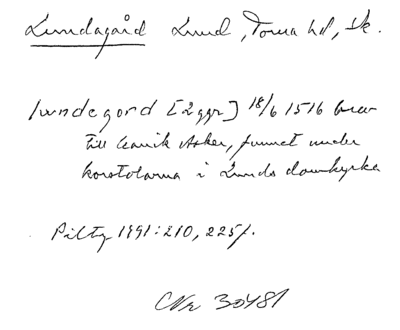 Lundagård Lund, Torna hd, Sk.
lundegord [2 ggr] 18/6 1516 brev
till Henrik Asker, funnet under
korstolarna i Lunds domkyrka
Piltz 1991: 210, 225f.
CNr 30481